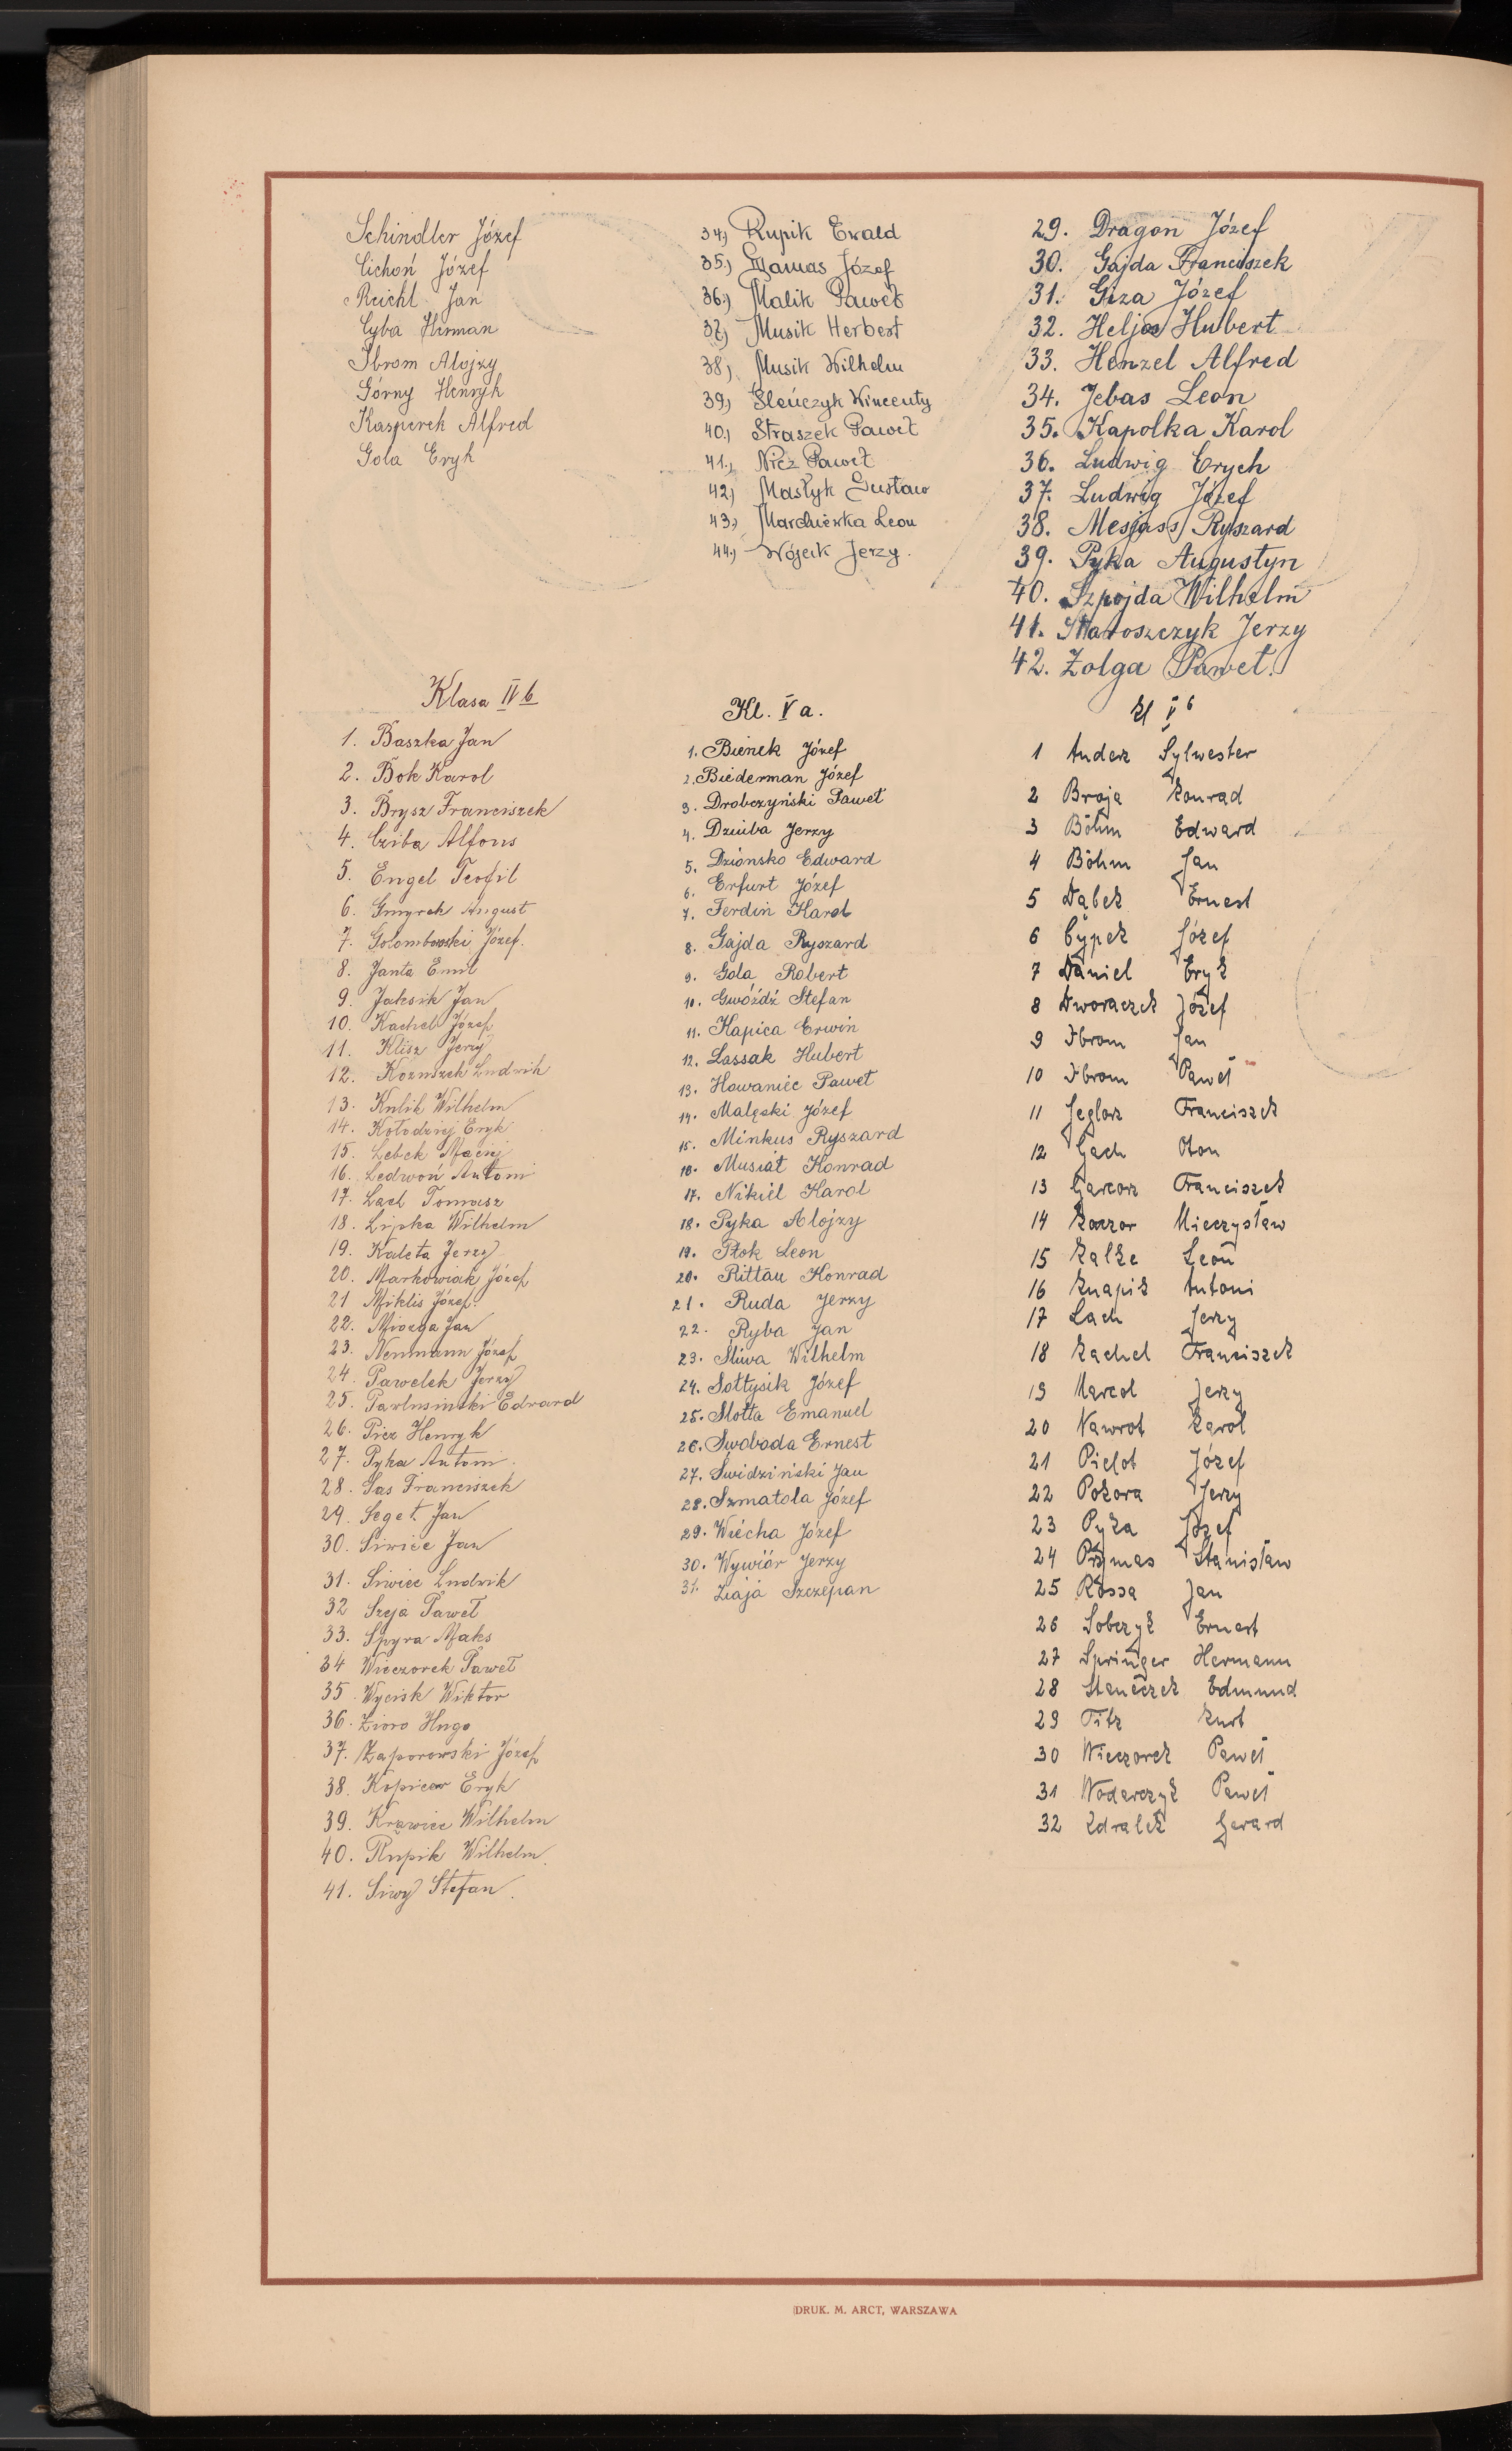 Schindler Józef
Cichoń Józef
Reichl Jan
Cyba Herman
Ibrom Alojzy
Górny Henryk
Kasperek Alfred
Gola Eryk
34.) Rupik Ewald
35.) Gamas Józef
36.) Malik Paweł
37.) Musik Herbert
38.) Musik Wilhelm
39.) Śleńczyk Wincenty
40.) Straszek Paweł
41.) Nicz Paweł
42.) Masłyk Gustaw
43.) Marchewka Leon
44.) Wójcik Jerzy.
29. Dragon Józef
30. Gajda Franciszek
31. Giza Józef
32. Heljos Hubert
33. Henzel Alfred
34. Jebas Leon
35. Kapolka Karol
36. Ludwig Erych
37. Ludwig Józef
38. Mesjass Ryszard
39. Pyka Augustyn
40. Szpojda Wilhelm
41. Staroszczyk Jerzy
42. Zolga Paweł.
Klasa IV b
1. Baszka Jan
2. Bok Karol
3. Brysz Franciszek
4. Cziba Alfons
5. Engel Teofil
6. Gmyrek August
7. Golombowski Józef.
8. Janta Emil
9. Jaksik Jan
10. Kachel Józef
11. Klisz Jerzy
12. Kożuszek Ludwik
13. Kulik Wilhelm
14. Kołodziej Eryk
15. Lebek Maciej
16. Ledwoń Antoni
17. Lach Tomasz
18. Lipka Wilhelm
19. Kaleta Jerzy
20. Markowiak Józef
21 Miklis Józef.
22. Mionga Jan
23. Neumann Józef
24. Pawelek Jerzy
25. Pawlusinski Edward
26. Piez Henryk
27. Pyka Antoni.
28. Sas Franciszek
29. Seget Jan
30. Siwiec Jan
31. Siwiec Ludwik
32 Szeja Paweł
33. Spyra Maks
34 Wieczorek Paweł
35. Wycisk Wiktor
36. Zioro Hugo
37. Zaporowski Józef
38. Kopiecw Eryk
39. Krawiec Wilhelm
40. Rupik Wilhelm.
41. Siwy Stefan.
Kl. V a.
1. Bienek Józef
2. Biederman Józef
3. Drobczyński Paweł
4. Dziuba Jerzy
5. Dzionsko Edward
6. Erfurt Józef
7. Ferdin Karol
8. Gajda Ryszard
9. Gola Robert
10. Gwóźdź Stefan
11. Kapica Erwin
12. Lassak Hubert
13. Howaniec Paweł
14. Malęski Józef
15. Minkus Ryszard
16. Musiał Konrad
17. Nikiel Karol
18. Pyka Alojzy
19. Ptok Leon
20. Rittau Konrad
21. Ruda Jerzy
22. Ryba Jan
23. Śliwa Wilhelm
24. Sołtysik Józef
25. Slotta Emanuel
26. Swoboda Ernest
27. Świdziński Jan
28. Szmatola Józef
29. Wiecha Józef
30. Wywiór Jerzy
31. Ziaja Szczepan
Kl V b
1 Anderk Sylwester
2 Broja Konrad
3 Böhm Edward
4 Böhm Jan
5 Dąbek Ernest
6 Cypek Józef
7 Daniel Eryk
8 Dworaczek Józef
9 Ibrom Jan
10 Ibrom Paweł
11 Jeglorz Franciszek
12 Gach Oton
13 Garcorz Franciszek
14 Kaczor Mieczysław
15 Kalke Leon
16 Knapik Antoni
17 Lach Jerzy
18 Kachel Franciszek
19 Marcol Jerzy
20 Nawrot Karol
21 Pielot Józef
22 Pokora Jerzy
23 Pyka Józef
24 Prymas Stanisław
25 Rossa Jan
26 Sobczyk Ernest
27 Springer Hermann
28 Staneczek Edmund
29 Titz Kurt
30 Wieczorek Paweł
31 Wodarczyk Paweł
32 Zdralek Gerard
DRUK. M. ARCT, WARSZAWA